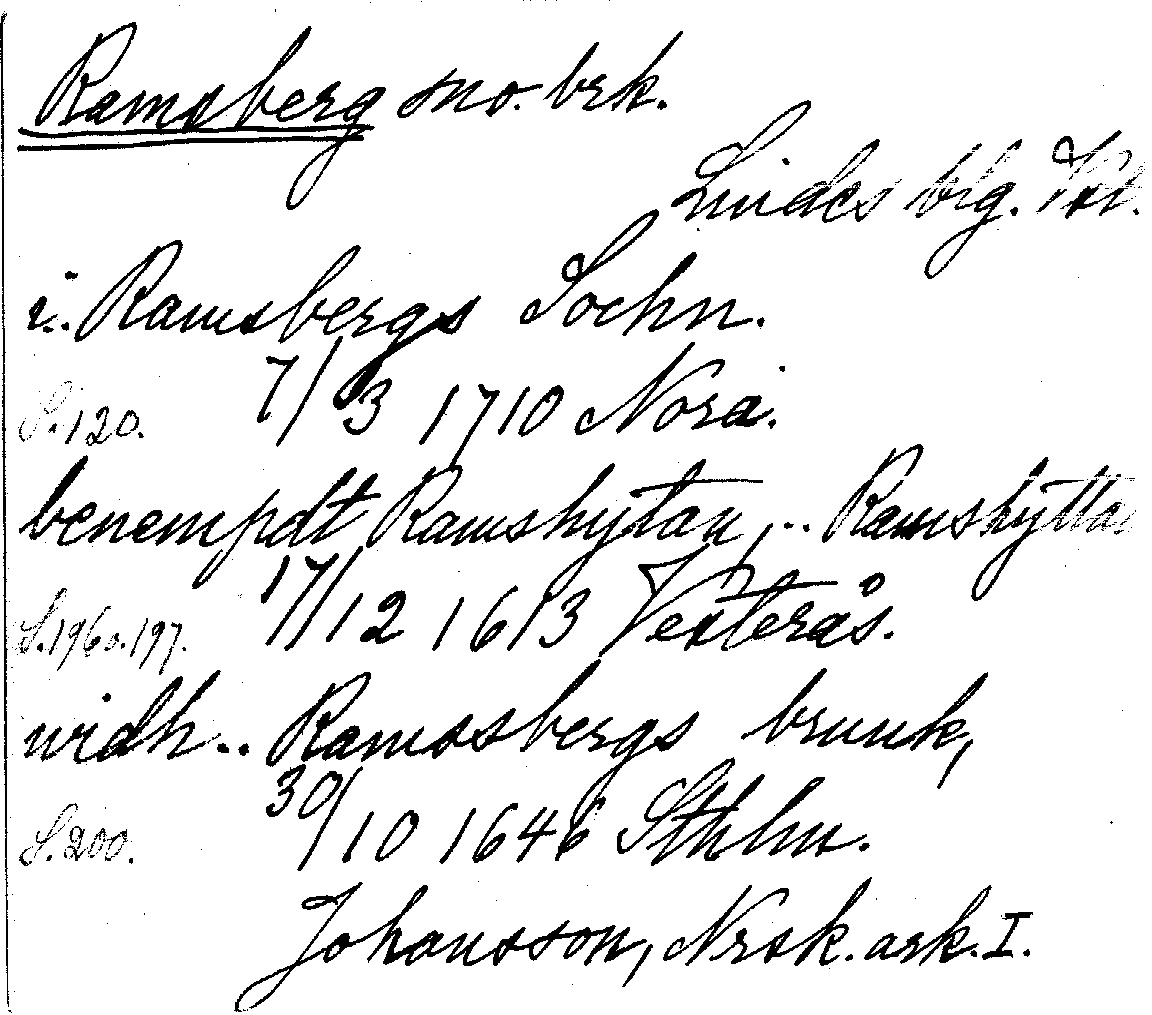 Ramsberg sno. brk.
Lindes blg. Vstl.
i.. Ramsbergs Sochn.
S. 120. 7/3 1710 Nora.
benempdt Ramshytan,.. Ramshytta
S. 196 o. 197. 17/12 1613 Vesterås.
widh.. Ramssbergs brunk,
S. 200. 30/10 1646 Sthlm.
Johansson, Nrsk. ark. I.